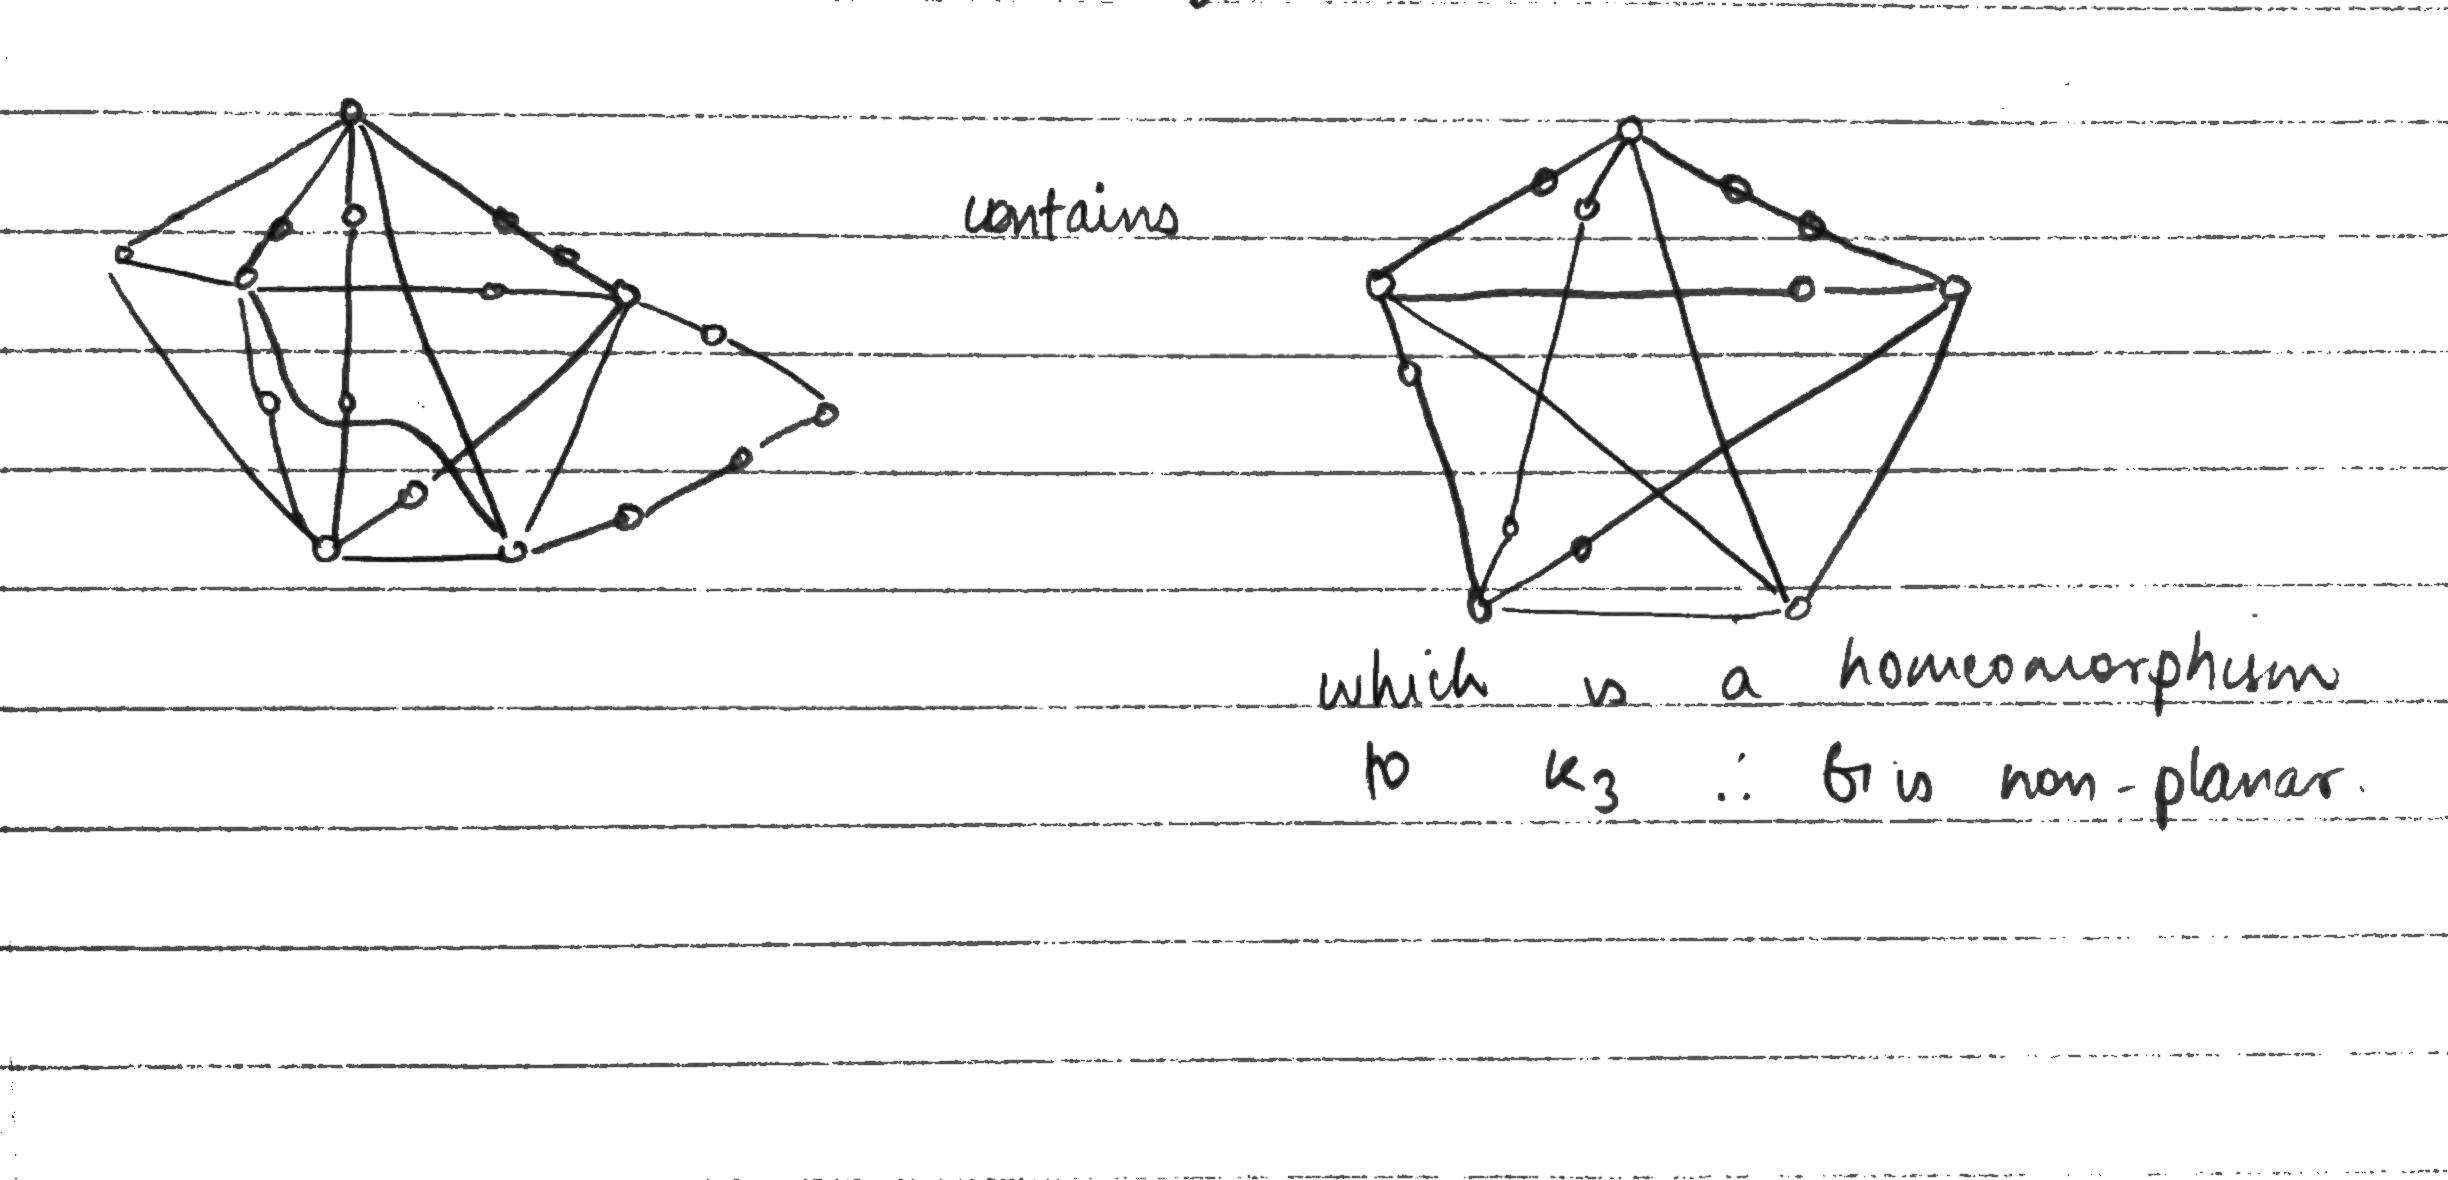 contains
which is a homeomorphism
to K3 ∴ G is non-planar.